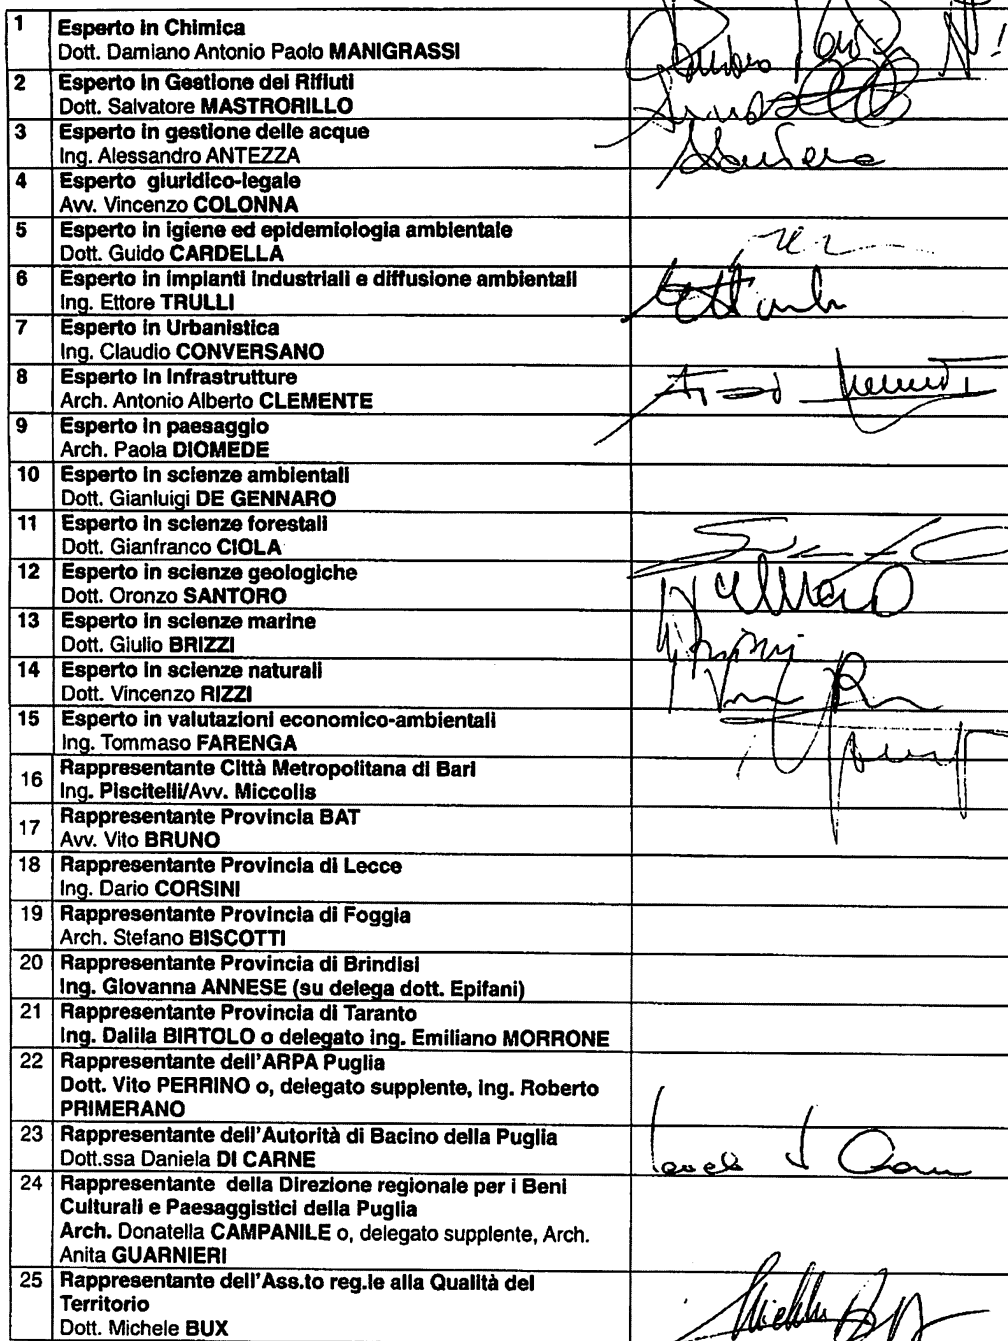 1 Esperto in Chimica
Dott. Damiano Antonio Paolo MANIGRASSI
2 Esperto in Gestione dei Rifiuti
Dott. Salvatore MASTRORILLO
3 Esperto in gestione delle acque
Ing. Alessandro ANTEZZA
4 Esperto giuridico-legale
Avv. Vincenzo COLONNA
5 Esperto in igiene ed epidemiologia ambientale
Dott. Guido CARDELLA
6 Esperto in impianti industriali e diffusione ambientali
Ing. Ettore TRULLI
7 Esperto in Urbanistica
Ing. Claudio CONVERSANO
8 Esperto in Infrastrutture
Arch. Antonio Alberto CLEMENTE
9 Esperto in paesaggio
Arch. Paola DIOMEDE
10 Esperto in scienze ambientali
Dott. Gianluigi DE GENNARO
11 Esperto in scienze forestali
Dott. Gianfranco CIOLA
12 Esperto in scienze geologiche
Dott. Oronzo SANTORO
13 Esperto in scienze marine
Dott. Giulio BRIZZI
14 Esperto in scienze naturali
Dott. Vincenzo RIZZI
15 Esperto in valutazioni economico-ambientali
Ing. Tommaso FARENGA
16 Rappresentante Città Metropolitana di Bari
Ing. Piscitelli/Avv. Miccolis
17 Rappresentante Provincia BAT
Avv. Vito BRUNO
18 Rappresentante Provincia di Lecce
Ing. Dario CORSINI
19 Rappresentante Provincia di Foggia
Arch. Stefano BISCOTTI
20 Rappresentante Provincia di Brindisi
Ing. Giovanna ANNESE (su delega dott. Epifani)
21 Rappresentante Provincia di Taranto
Ing. Dalila BIRTOLO o delegato ing. Emiliano MORRONE
22 Rappresentante dell'ARPA Puglia
Dott. Vito PERRINO o, delegato supplente, ing. Roberto
PRIMERANO
23 Rappresentante dell'Autorità di Bacino della Puglia
Dott.ssa Daniela DI CARNE
24 Rappresentante della Direzione regionale per i Beni
Culturali e Paesaggistici della Puglia
Arch. Donatella CAMPANILE o, delegato supplente, Arch.
Anita GUARNIERI
25 Rappresentante dell'Ass.to reg.le alla Qualità del
Territorio
Dott. Michele BUX